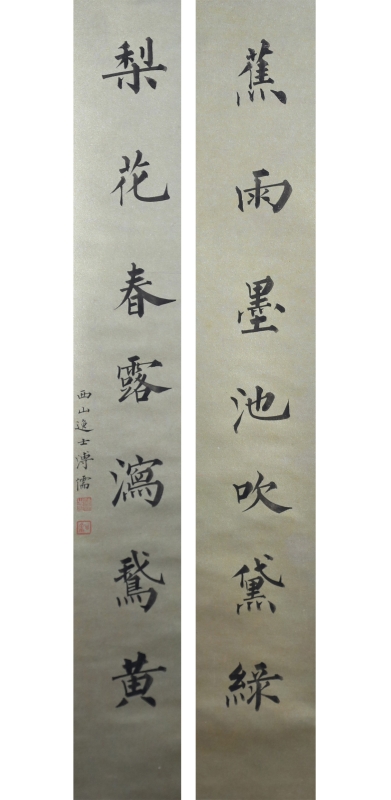 蕉雨墨池吹黛綠
梨花春露瀉鵞黄
西山逸士溥儒